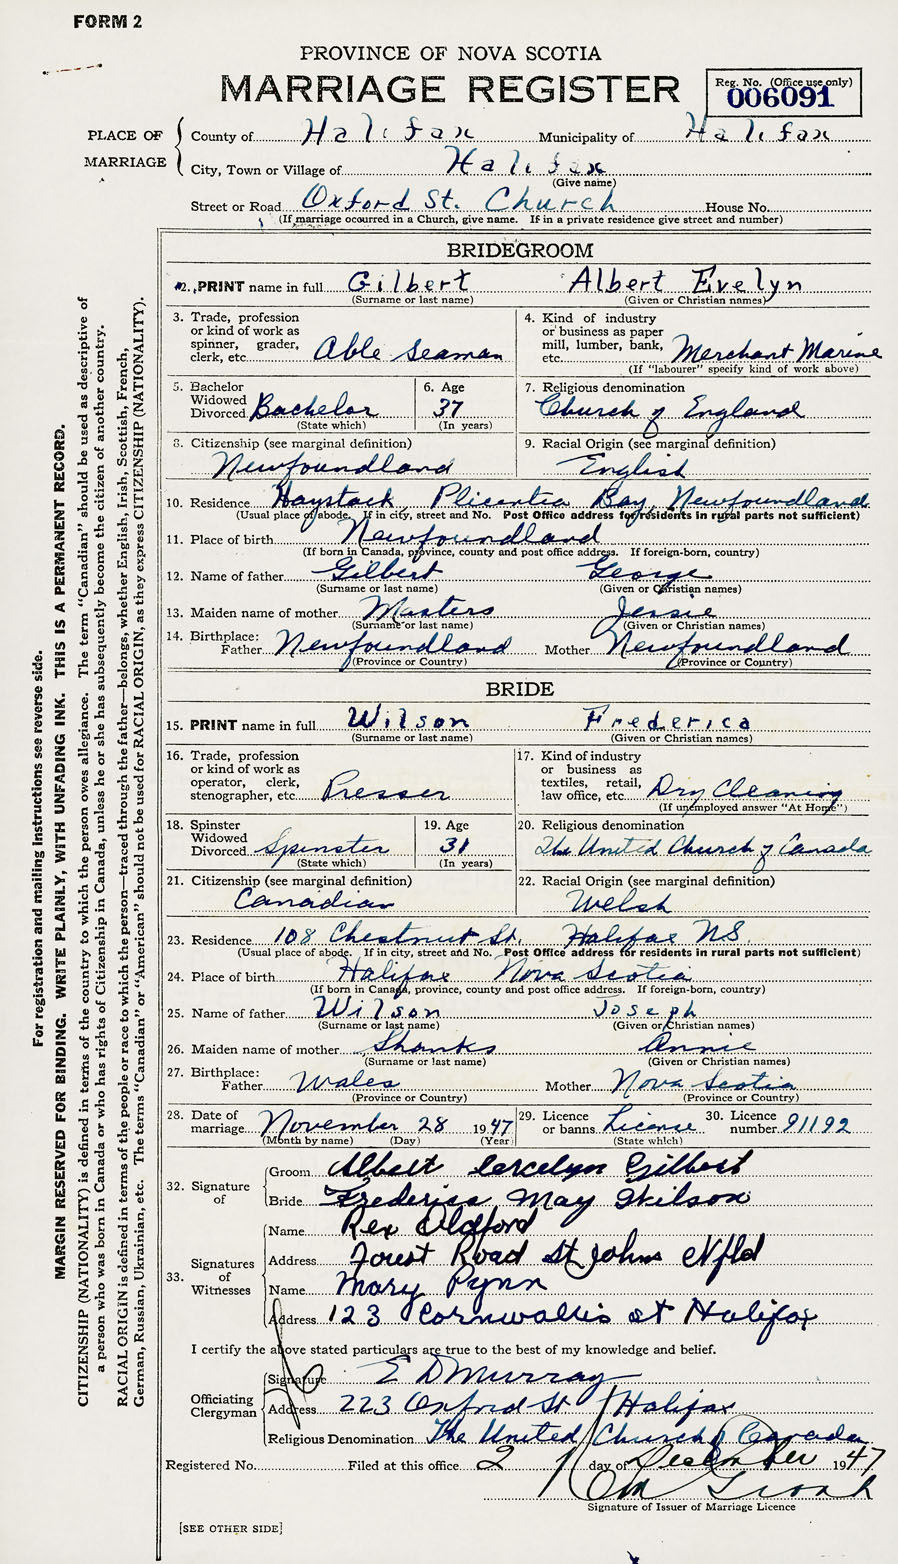 FORM 2
PROVINCE OF NOVA SCOTIA
MARRIAGE REGISTER
Reg. No. (Office use only)
006091
PLACE OF MARRIAGE
County of Halifax Municipality of Halifax
City, Town or Village of Halifax
(Give name)
Street or Road Oxford St. Church House No.
(If marriage ocourred in a Church, give name. If in a private residence give street and number)
BRIDEGROOM
2. PRINT name in full Gilbert Albert Evelyn
(Surname or last name) (Given or Christian names)
3. Trade, profession
or kind of work as
spinner, grader,
clerk, etc. Able Seaman
4. Kind of industry
or business as paper
mill, lumber, bank,
etc. Merchant Marine
(If "labourer" specify kind of work above)
5. Bachelor
Widowed
Divorced Bachelor
(State which)
6. Age
37
(In years)
7. Religious denomination
Church of England
8. Citizenship (see marginal definition)
Newfoundland
9. Racial Origin (see marginal definition)
English
10. Residence Haystack Plicentia Bay, Newfoundland
(Usual place of abode. If in city, street and No. Post Office address for residents in rural parts not sufficient)
11. Place of birth Newfoundland
(If born in Canada, province, county and post office address. If foreign-born, country)
12. Name of father Gilbert George
(Surname or last name) (Given or Christian names)
13. Maiden name of mother Masters Jessie
(Surname or last name) (Given or Christian names)
14. Birthplace:
Father Newfoundland Mother Newfoundland
(Province or Country) (Province or Country)
BRIDE
15. PRINT name in full Wilson Frederica
(Surname or last name) (Given or Christian names)
16. Trade, profession
or kind of work as
operator, clerk,
stenographer, etc. Presser
17. Kind of industry
or business as
textiles, retail,
law office, etc. Dry Cleaning
(If unemployed answer "At Home")
18. Spinster
Widowed
Divorced Spinster
(State which)
19. Age
31
(In years)
20. Religious denomination
The United Church of Canada
21. Citizenship (see marginal definition)
Canadian
22. Racial Origin (see marginal definition)
Welsh
23. Residence 108 Chestnut St. Halifax N.S.
(Usual place of abode. If in city, street and No. Post Office address for residents in rural parts not sufficient)
24. Place of birth Halifax Nova Scotia
(If born in Canada, province, county and post office address. If foreign-born, country)
25. Name of father Wilson Joseph
(Surname or last name) (Given or Christian names)
26. Maiden name of mother Shanks Annie
(Surname or last name) (Given or Christian names)
27. Birthplace:
Father Wales Mother Nova Scotia
(Province or Country) (Province or Country)
28. Date of
marriage November 28 1947
(Month by name) (Day) (Year)
29. Licence
or banns License
(State which)
30. Licence
number 91192
32. Signature of
Groom Albert Gilbert
Bride Frederica May Wilson
33. Signatures of Witnesses
Name Rex Oldford
Address Forest Road St Johns Nfld
Name Mary Pynn
Address 123 Cornwallis st Halifax
I certify the above stated particulars are true to the best of my knowledge and belief.
Officiating Clergyman
Signature E D Murray
Address 223 Oxford St Halifax
Religious Denomination The United Church of Canada
Registered No. Filed at this office 2 day of December 1947
Signature of Issuer of Marriage Licence
[SEE OTHER SIDE]
For registration and mailing instructions see reverse side.
MARGIN RESERVED FOR BINDING. WRITE PLAINLY, WITH UNFADING INK. THIS IS A PERMANENT RECORD.
CITIZENSHIP (NATIONALITY) is defined in terms of the country to which the person owes allegiance. The term "Canadian" should be used as descriptive of
a person who was born in Canada or who has rights of Citizenship in Canada, unless he or she has subsequently become the citizen of another country.
RACIAL ORIGIN is defined in terms of the people or race to which the person—traced through the father—belongs, whether English, Irish, Scottish, French,
German, Russian, Ukrainian, etc. The terms "Canadian" or "American" should not be used for RACIAL ORIGIN, as they express CITIZENSHIP (NATIONALITY).